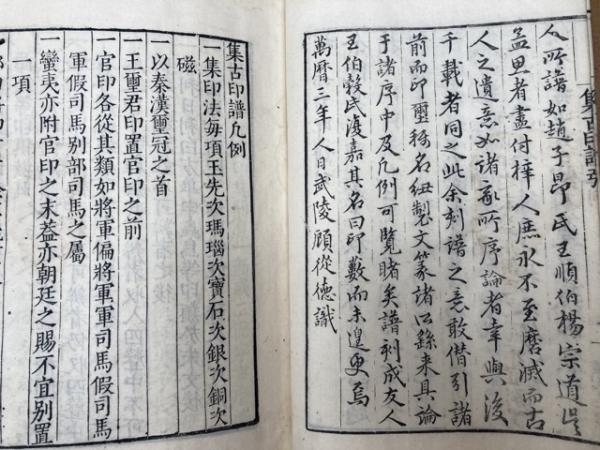 人所譜如趙子昂氏王順伯楊宗道吳
孟思者盡付梓人庶永不至磨滅而古
人之遺意如諸家所序論者幸與後
千載者同之此余刻譜之意敢僭引諸
前而印璽稱名紐製文篆諸公錄来具論
于諸序中及凡例可覽睹矣譜刻成友人
王伯榖氏復嘉其名曰印數而未遑更焉
萬曆三年人日武陵顧從德識
集古印譜凡例
一集印法每項玉先次瑪瑙次寶石次銀次銅次
磁
一以秦漢璽冠之首
一王璽君印置官印之前
一官印各從其類如將軍偏將軍軍司馬假司馬
軍假司馬別部司馬之屬
一蠻夷亦附官印之末葢亦朝廷之賜不宜別置
一項